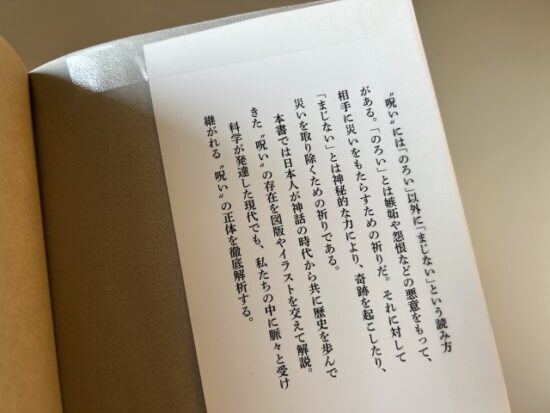 〝呪い〟には「のろい」以外に「まじない」という読み方
がある。「のろい」とは嫉妬や怨恨などの悪意をもって、
相手に災いをもたらすための祈りだ。それに対して
「まじない」とは神秘的な力により、奇跡を起こしたり、
災いを取り除くための祈りである。
本書では日本人が神話の時代から共に歴史を歩んで
きた〝呪い〟の存在を図版やイラストを交えて解説。
科学が発達した現代でも、私たちの中に脈々と受け
継がれる〝呪い〟の正体を徹底解析する。